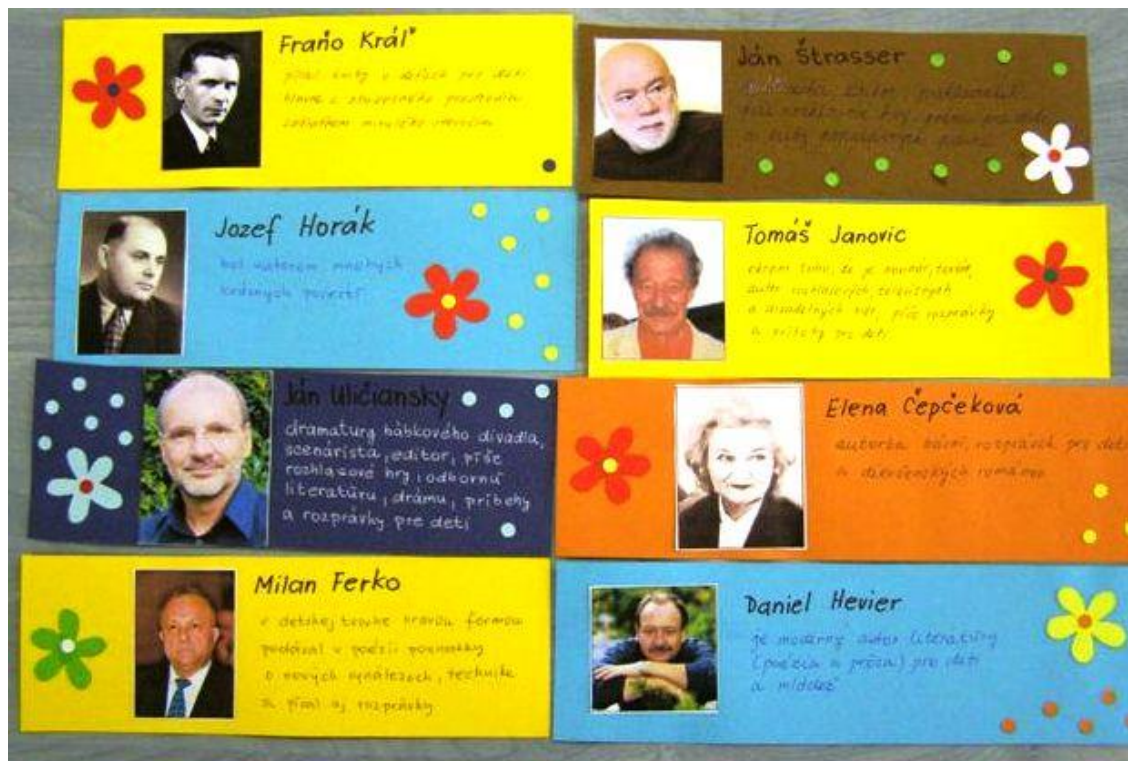 Fraňo Kráľ
písal knihy o deťoch pre deti
hlavne z
Jozef Horák
bol autorom mnohých
povestí
Ján Uličiansky
dramaturg bábkového divadla,
scenárista, editor, píše
rozhlasové hry, odbornú
literatúru, drámu, príbehy
a rozprávky pre deti
Milan Ferko
v detskej tvorbe hravou formou
podával v poézii poznatky
o nových vynálezoch, technike
a písal aj rozprávky
Ján Štrasser
Tomáš Janovic
okrem toho, že je novinár, textár,
autor rozhlasových, televíznych
a divadelných hier, píše rozprávky
a príbehy pre deti
Elena Čepčeková
autorka básní, rozprávok pre deti
a dievčenských románov
Daniel Hevier
je moderný autor literatúry
(poézia a próza) pre deti
a mládež